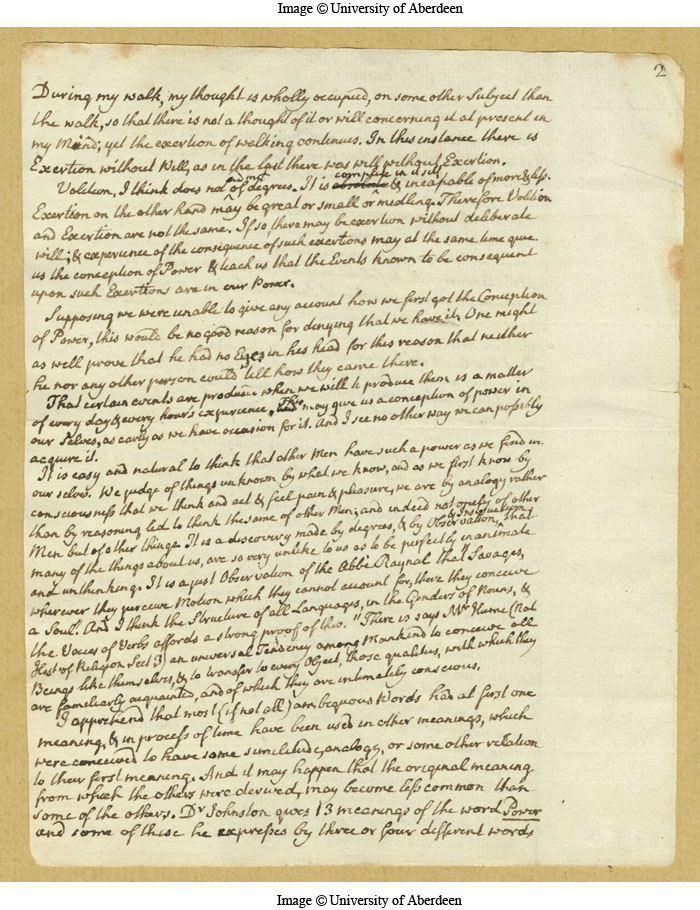 Image © University of Aberdeen
2
During my walk, my thought is wholly occupied, on some other Subject than
the walk, so that there is not a thought of it or will concerning it at present in
my Mind; yet the exertion of walking continues. In this instance there is
Exertion without Will, as in the last there was will without Exertion.
Volition, I think does not admit of degrees. It is compleat in itself & incapable of more & less.
Exertion on the other hand may be great or small or midling. Therefore Volition
and Exertion are not the same. If so, there may be exertion without deliberate
will; & experience of the consequence of such exertions may at the same time give
us the conception of Power & teach us that the Events known to be consequent
upon such Exertions are in our Power.
Supposing we were unable to give any account how we first got the Conception
of Power, this would be no good reason for denying that we have it. One might
as well prove that he had no Eyes in his head for this reason that neither
he nor any other person could tell how they came there.
That certain events are produced when we will to produce them is a matter
of every day & every hours experience, This may give us a conception of power in
our selves, as early as we have occasion for it. And I see no other way we can possibly
acquire it.
It is easy and natural to think that other Men have such a power as we find in
our selves. We judge of things unknown by what we know, and as we first know by
consciousness that we think and act & feel pain & pleasure, we are by analogy rather
than by reasoning led to think the same of other Men; and indeed not onely of other
Men but of other things. It is a discovery made by degrees, & by Observation & Instruction, that
many of the things about us, are so very unlike to us as to be perfectly inanimate
and unthinking. It is a just Observation of the Abbé Raynal that "Savages,
wherever they perceive Motion which they cannot account for, there they conceive
a Soul". And I think the Structure of all Languages, in the Genders of Nouns, &
the Voices of Verbs affords a strong proof of this. "There is says Mr Hume (Nat
Hist of Religion Sect 3) an universal Tendency among Mankind to conceive all
Beings like themselves, & to transfer to every Object, those qualities, with which they
are familiarly acquainted, and of which they are intimately conscious.
I apprehend that most (if not all) ambiguous Words had at first one
meaning, & in process of time have been used in other meanings, which
were conceived to have some similitude, analogy, or some other relation
to their first meaning. And it may happen that the original meaning
from which the others were derived, may become less common than
some of the others. Dr Johnston gives 13 meanings of the word Power
and some of these he expresses by three or four different words
Image © University of Aberdeen